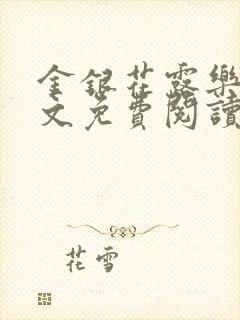 金銀花露樂
文免費閱讀
花雪